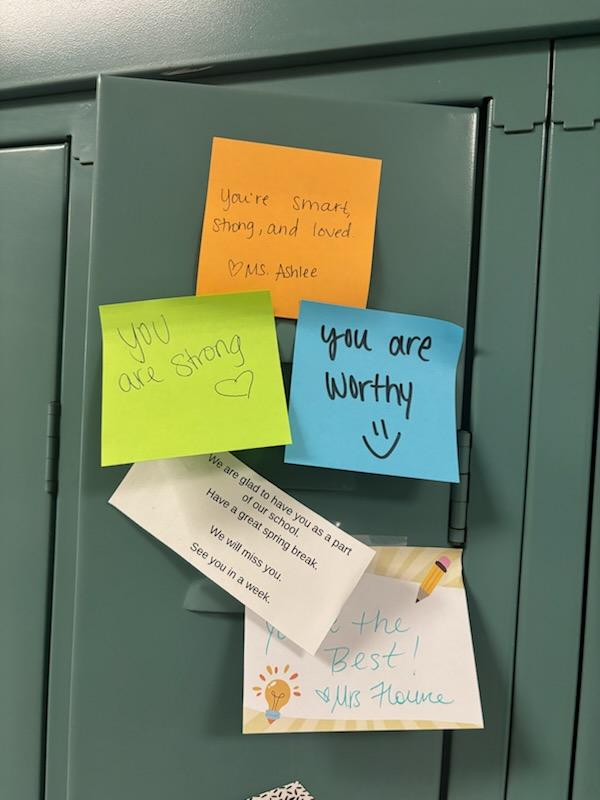 You're smart,
strong, and loved.
♡ Ms. Ashlee
YOU
are strong
♡
you are
worthy
We are glad to have you as a part
of our school.
Have a great spring break.
We will miss you.
See you in a week.
the
Best!
Mrs